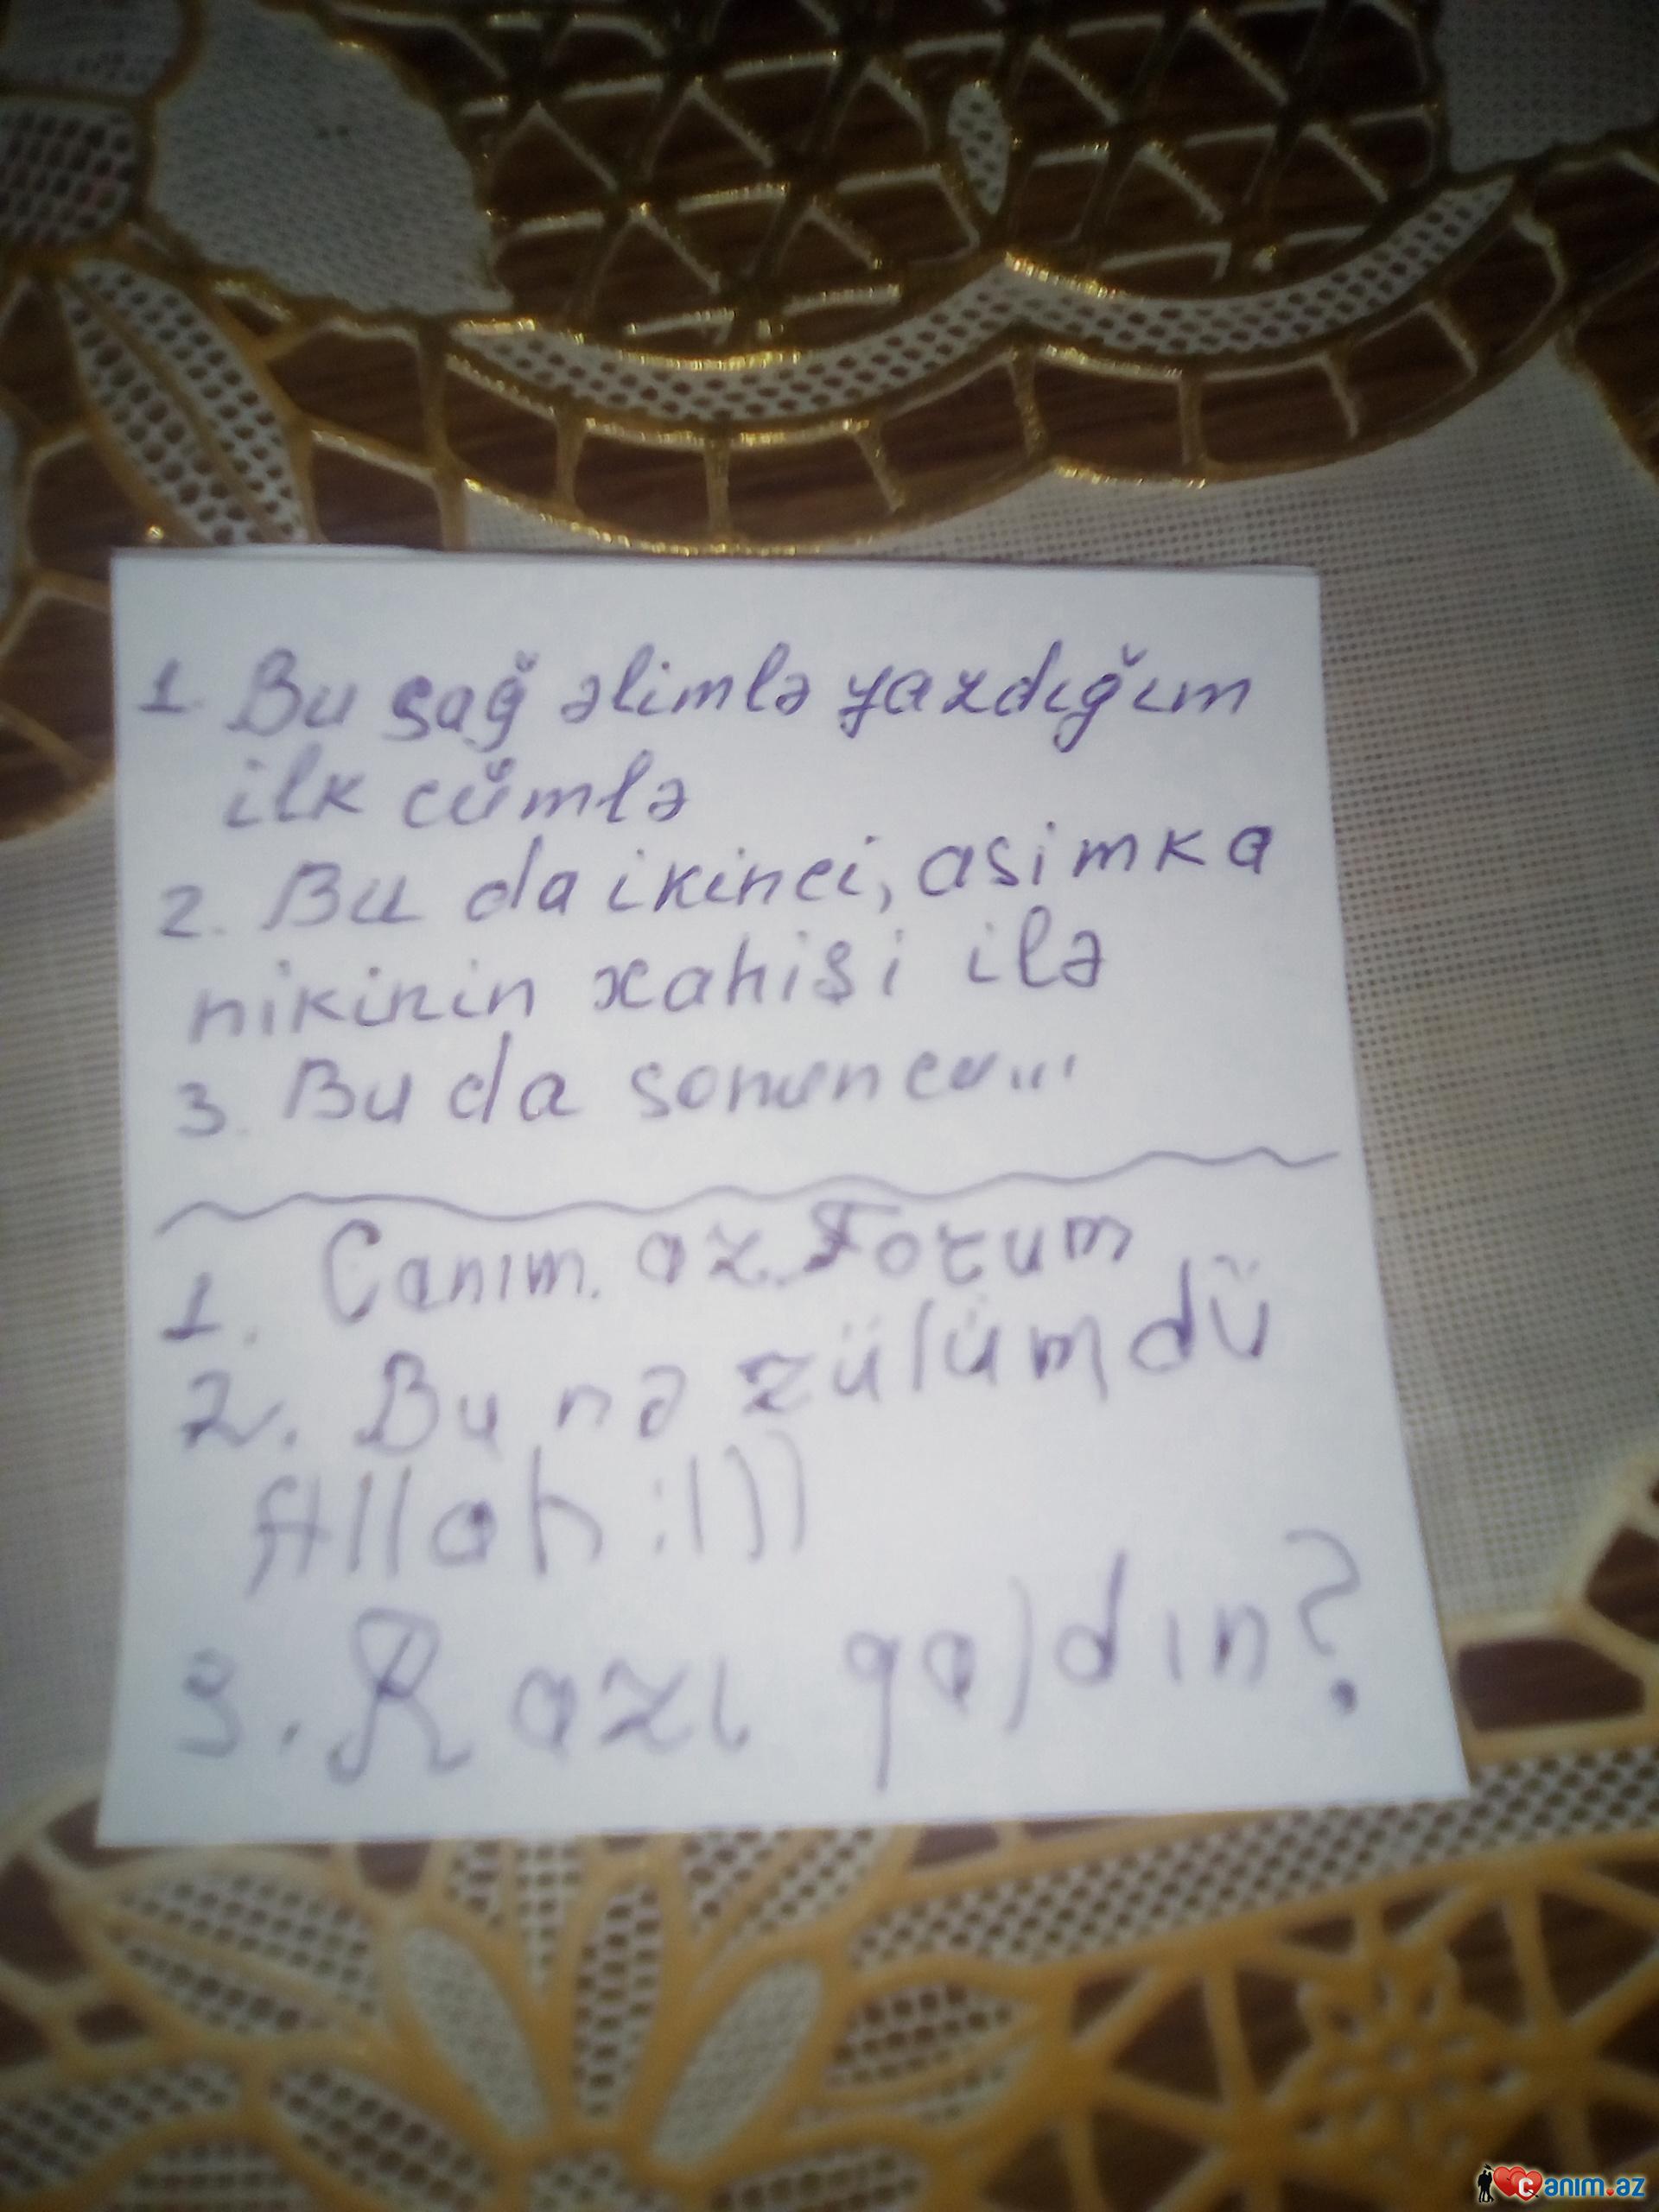 1. Bu sağ əlimlə yazdığım
ilk cümlə
2. Bu da ikinci, asimka
nikinin xahişi ilə
3. Bu da sonuncu...
1. Canım.az Forum
2. Bu nə zülümdü
Allah :)))
3. Razı qaldın?
Canım.az